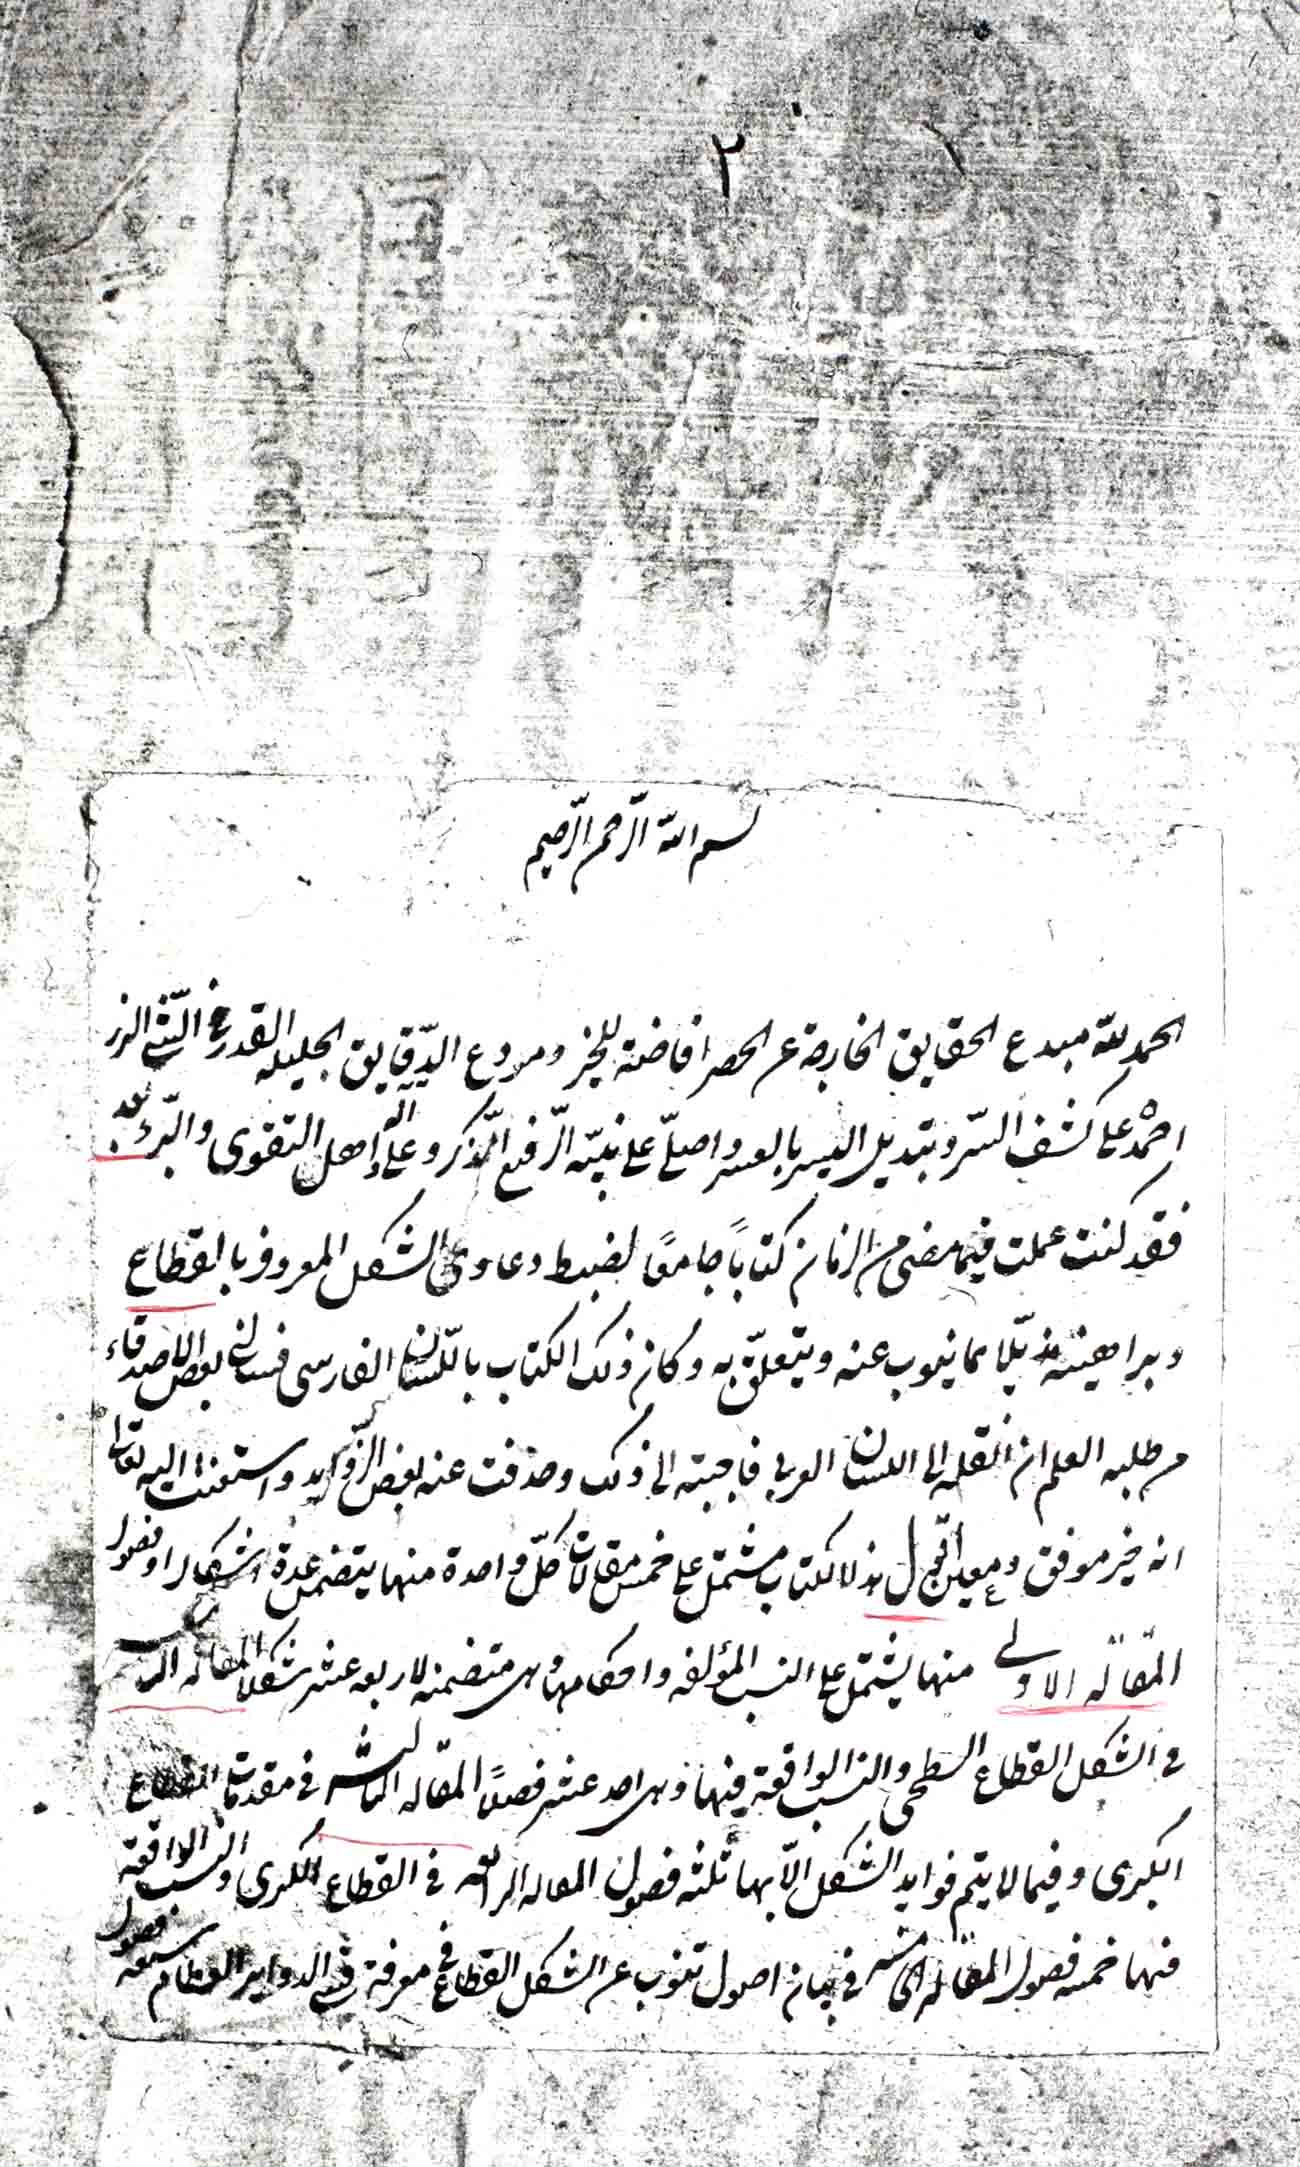 ٢
بسم الله الرّحمن الرّحيم
الحمد لله مبدع الحقايق الخارجة عن الحصر افاضة للخير ومودع الدّقايق الجليله القدر في الشّئ النزر
احمده على كشف السّر وتبديل اليسر بالعسر واصلّي على نبيّه الرّفيع الذكر وعلى اله اهل التقوى والبّر وبعد
فقد كنت عملت فيما مضى من الزمان كتاباً جامعًا لضبط دعاوى الشكل المعروف بالقطاع
وبراهينه مذيّلا بما ينوب عنه ويتعلّق به وكان ذلك الكتاب باللّسان الفارسى فسالنى بعض الاصدقاء
من طلبه العلم ان انقله الى اللسان العربى فاجبته الى ذلك وحذفت عنه بعض الزّوايد واستعنت اليه تعالى
انه خير موفق ومعين اقول هذا لكتاب مشتمل على خمس مقالات كلّ واحدة منها يتضمن عدة اشكال او فصول
المقاله الاولى منها يشتمل على النسب المؤلفه واحكامها وهى متضمنه لاربعه عشر شكلا المقاله الثانيه
فى الشكل القطاع السطحى والنسب الواقعة فيها وهى احد عشر فصلاً المقاله الثالثه فى مقدمات القطاع
الكبرى وفيما لا يتم فوايد الشكل الاّ بها ثلثه فصول المقاله الرابعه فى القطاع الكبرى والنسب الواقعة
فيها خمسه فصول المقاله الخامسه فى بيان اصول تنوب عن الشكل القطاع فى معرفة قسى الدواير العظام سبعه فصول